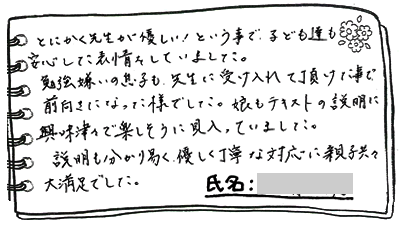 とにかく先生が優しい！という事で、子ども達も
安心した表情をしていました。
勉強嫌いの息子も、先生に受け入れて頂けた事で
前向きになった様でした。娘もテキストの説明に
興味津々で楽しそうに見入っていました。
説明も分かり易く、優しく丁寧な対応に親子共々
大満足でした。
氏名：